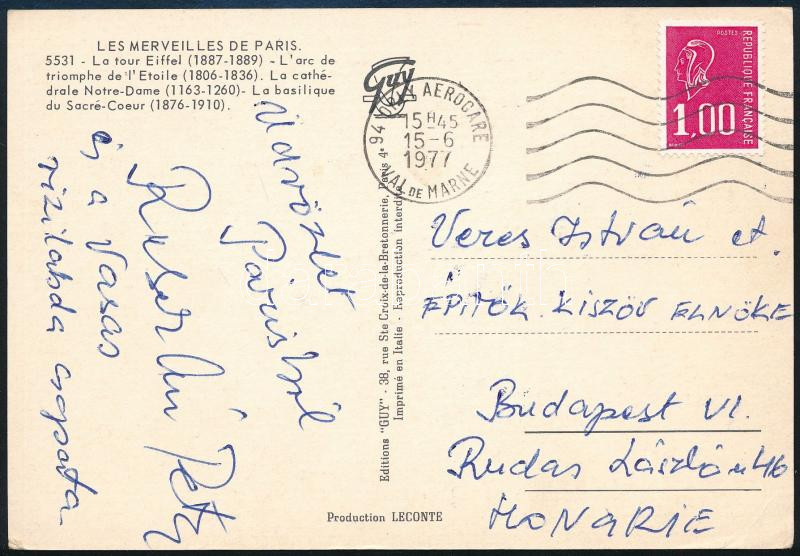 LES MERVEILLES DE PARIS.
5531 - La tour Eiffel (1887-1889) - L'arc de
triomphe de l'Etoile (1806-1836). La cathé-
drale Notre-Dame (1163-1260)- La basilique
du Sacré-Coeur (1876-1910).
Guy
94 ORLY AEROGARE
15H45
15-6
1977
VAL DE MARNE
POSTES
REPUBLIQUE FRANÇAISE
1,00
Üdvözlet
Párisból
Péter
és a Vasas
vízilabda csapata
Editions "GUY" - 38, rue Ste Croix-de-la-Bretonnerie, Paris 4e
Imprimé en Italie - Reproduction Interdite
Veres István et.
ÉPITÖK KISZÖV ELNÖKE
Budapest VI.
Rudas László u 46
HONGRIE
Production LECONTE